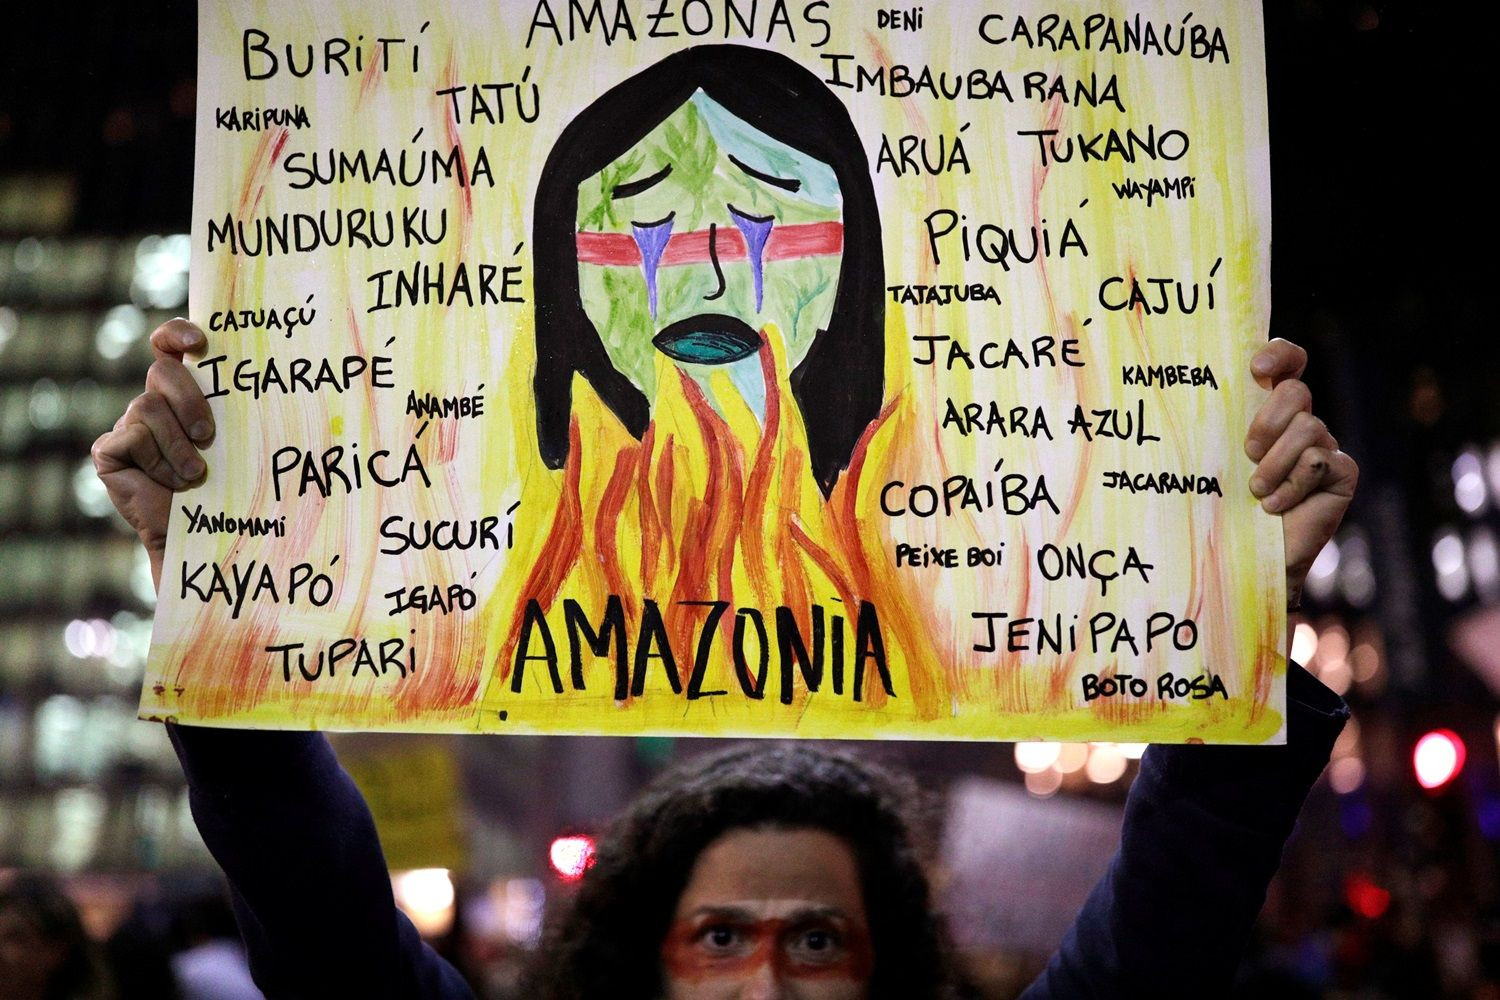 AMAZONAS
DENI
CARAPANAÚBA
BURITÍ
IMBAUBA RANA
TATÚ
KARIPUNA
SUMAÚMA
ARUÁ
TUKANO
WAYAMPI
MUNDURUKU
PIQUIÁ
INHARÉ
TATAJUBA
CAJUÍ
CAJUAÇÚ
IGARAPÉ
JACARÉ
KAMBEBA
ANAMBÉ
ARARA AZUL
PARICÁ
COPAÍBA
JACARANDA
YANOMAMI
SUCURÍ
PEIXE BOI
ONÇA
KAYAPÓ
IGAPÓ
AMAZONIA
JENIPAPO
TUPARI
BOTO ROSA